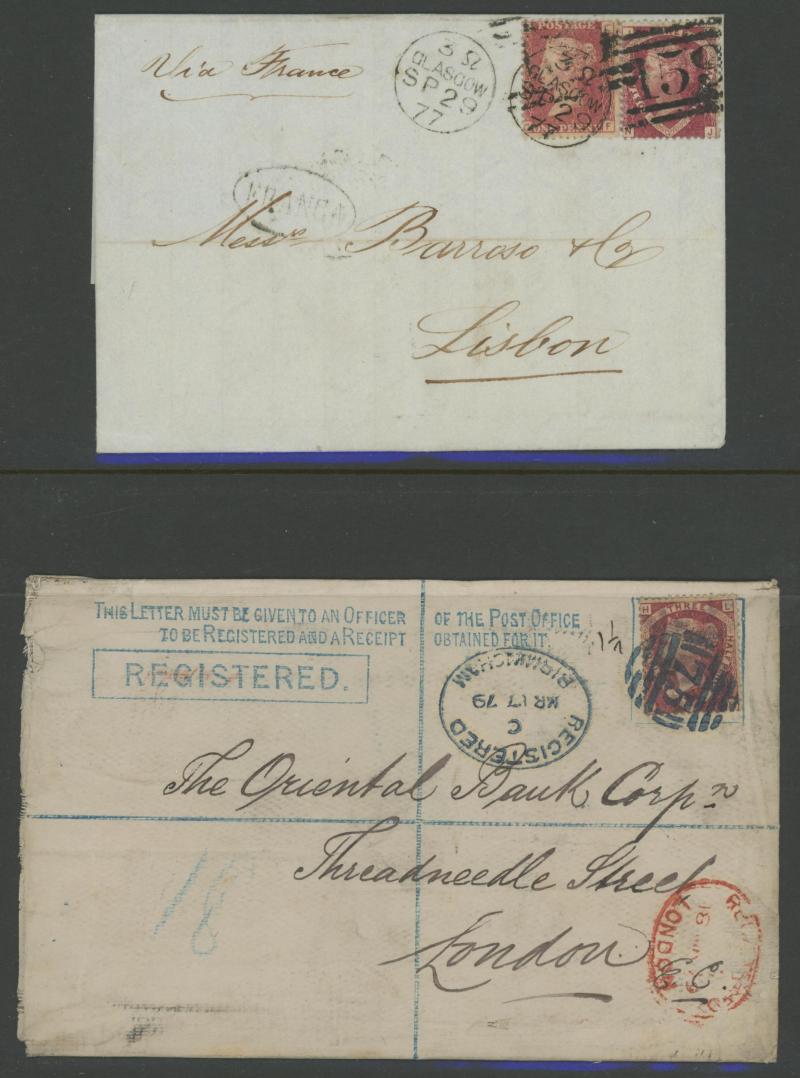 Via France
GLASGOW
SP 29
77
POSTAGE
GLASGOW
SP 29
77
159
F
J
FRANCA
Messrs Barroso & Co
Lisbon
THIS LETTER MUST BE GIVEN TO AN OFFICER OF THE POST OFFICE
TO BE REGISTERED AND A RECEIPT OBTAINED FOR IT.
REGISTERED.
1½
H THREE L
HALF
75
BIRMINGHAM
MR 17 79
C
REGISTERED
The Oriental Bank Corpn
Threadneedle Street
London.
E.C.
LONDON
18